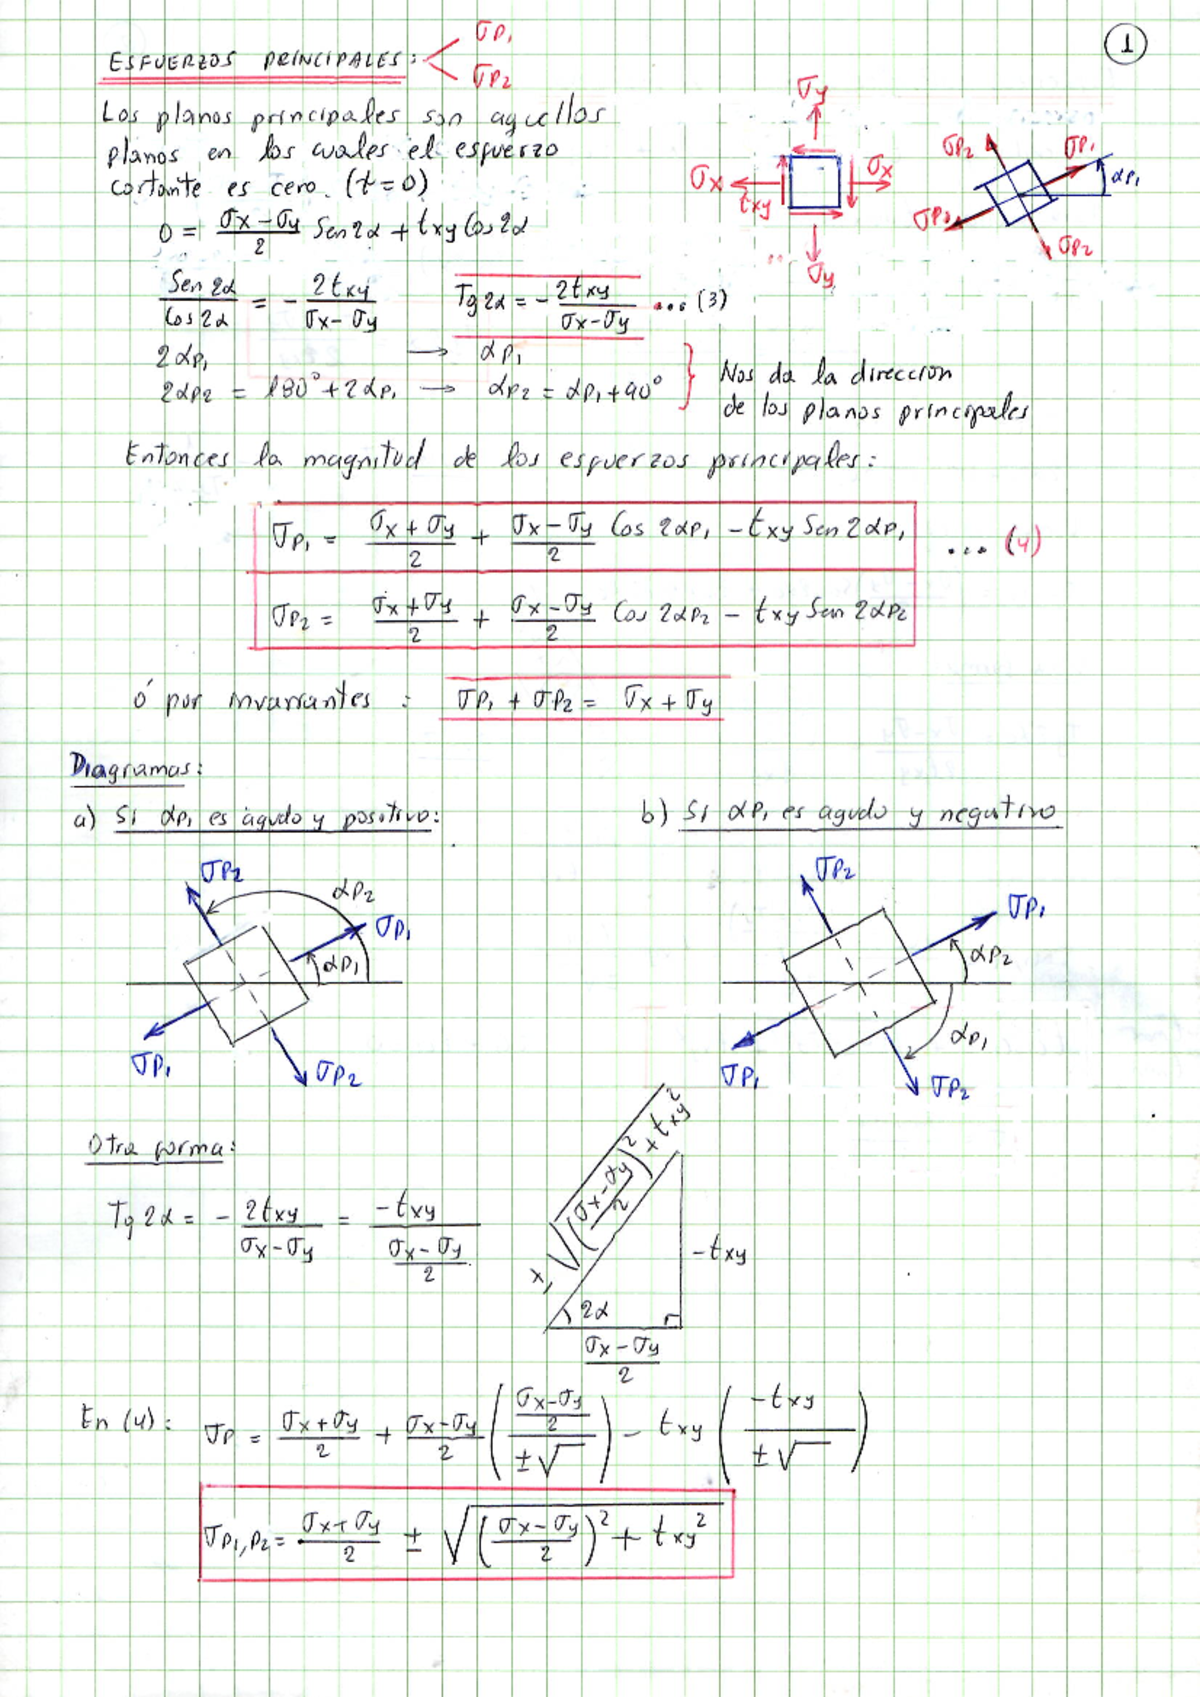 1
ESFUERZOS PRINCIPALES: σP1
σP2
Los planos principales son aquellos
planos en los cuales el esfuerzo
cortante es cero. (t=0)
0 = (σx-σy)/2 Sen2α + txy Cos2α
σy
σx txy σx
σy
σP2 σP1 αP1
σP2
Sen2α/Cos2α = - 2txy/(σx-σy) Tg2α = - 2txy/(σx-σy) ... (3)
2αP1 → αP1
2αP2 = 180°+2αP1 → αP2 = αP1+90° } Nos da la direccion
de los planos principales
Entonces la magnitud de los esfuerzos principales:
σP1 = (σx+σy)/2 + (σx-σy)/2 Cos 2αP1 - txy Sen 2αP1 ... (4)
σP2 = (σx+σy)/2 + (σx-σy)/2 Cos 2αP2 - txy Sen 2αP2
ó por invariantes : σP1 + σP2 = σx + σy
Diagramas:
a) Si αP1 es agudo y positivo:
b) Si αP1 es agudo y negativo
σP2 αP2
σP1
αP1
σP1
σP2
σP2
σP1
αP2
αP1
σP1
σP2
Otra forma:
Tg 2α = - 2txy/(σx-σy) = -txy/((σx-σy)/2)
√(((σx-σy)/2)² + txy²)
-txy
2α
(σx-σy)/2
En (4): σP = (σx+σy)/2 + (σx-σy)/2 (((σx-σy)/2)/(±√)) - txy (-txy/(±√))
σP1,P2 = (σx+σy)/2 ± √(((σx-σy)/2)² + txy²)